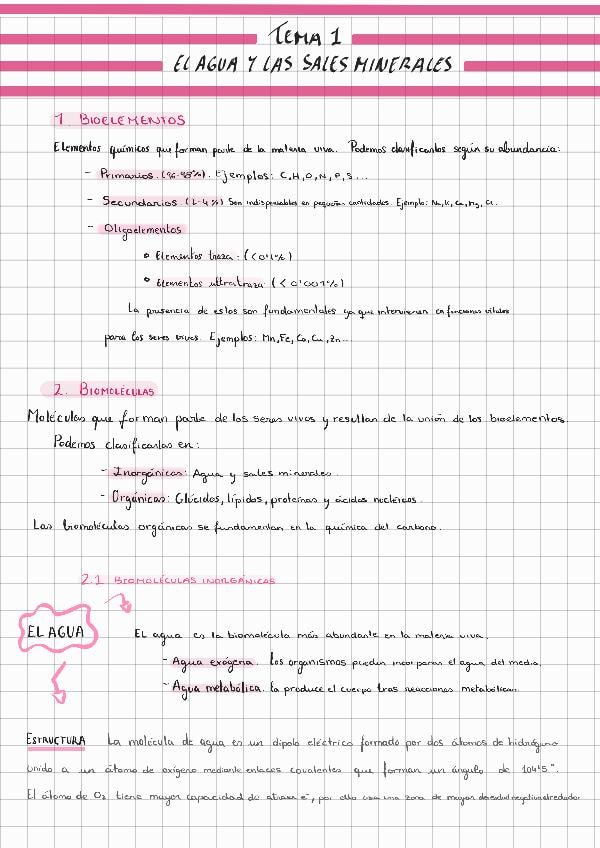 TEMA 1
EL AGUA Y LAS SALES MINERALES
1. BIOELEMENTOS
Elementos químicos que forman parte de la materia viva. Podemos clasificarlos según su abundancia:
- Primarios. (96-98%). Ejemplos: C, H, O, N, P, S...
- Secundarios. (2-4%) Son indispensables en pequeñas cantidades. Ejemplo: Na, K, Ca, Mg, Cl.
- Oligoelementos
Elementos traza: (<0'1%)
Elementos ultratraza: (<0'001%)
La presencia de estos son fundamentales ya que intervienen en funciones vitales
para los seres vivos. Ejemplos: Mn, Fe, Co, Cu, Zn...
2. BIOMOLÉCULAS
Moléculas que forman parte de los seres vivos y resultan de la unión de los bioelementos.
Podemos clasificarlas en:
- Inorgánicas: Agua y sales minerales.
- Orgánicas: Glúcidos, lípidos, proteínas y ácidos nucleicos.
Las biomoléculas orgánicas se fundamentan en la química del carbono.
2.1 BIOMOLÉCULAS INORGÁNICAS
EL AGUA
EL agua es la biomolécula más abundante en la materia viva.
- Agua exógena. Los organismos pueden incorporar el agua del medio.
- Agua metabólica. La produce el cuerpo tras reacciones metabólicas.
ESTRUCTURA La molécula de agua es un dipolo eléctrico formado por dos átomos de hidrógeno
unido a un átomo de oxígeno mediante enlaces covalentes que forman un ángulo de 104'5°.
El átomo de O2 tiene mayor capacidad de atraer e-, por ello crea una zona de mayor densidad negativa alrededor